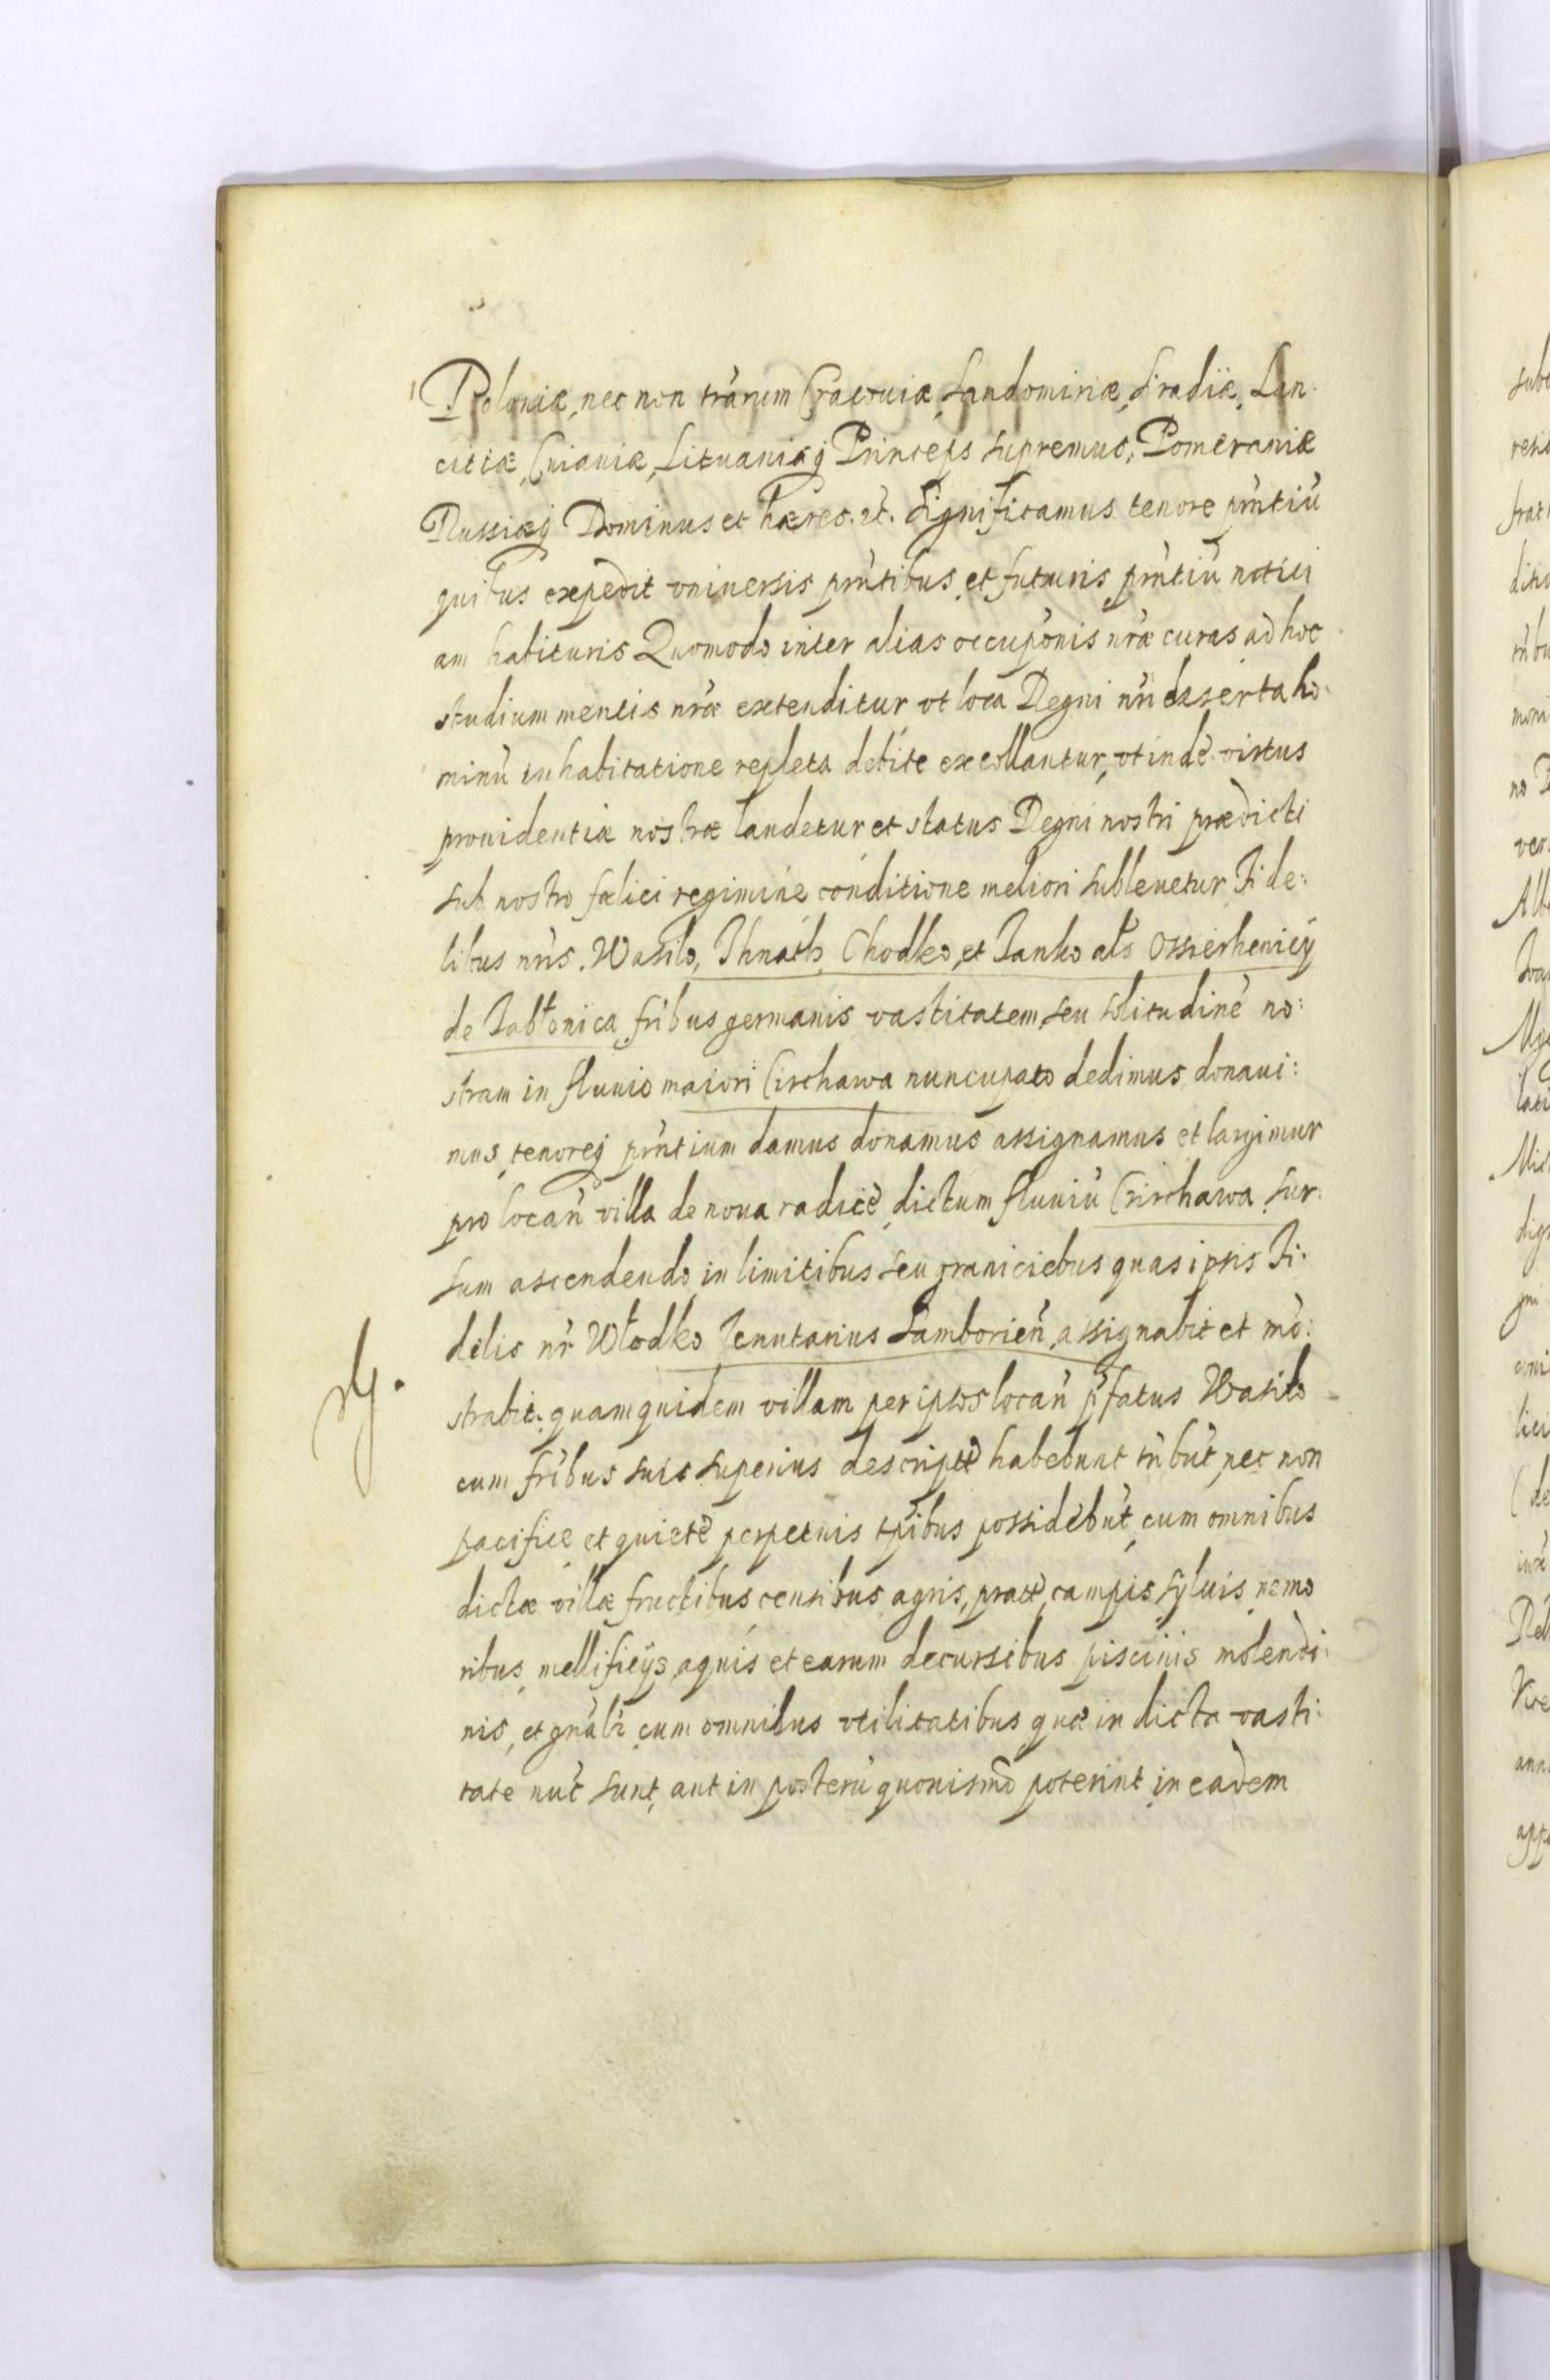 Poloniæ, nec non trarum Cracouiæ, Sandomiriæ, Siradiæ, Lan:
citiæ, Cuiauiæ, Lituaniæq Princeps supremus, Pomeraniæ
Russiæq Dominus et hæres. etc. Significamus tenore pñtiũ
quibus expedit vniuersis pñtibus et futuris pñtiũ notici
am habituris Quomodo inter alias occupõnis nræ curas ad hoc
studium mentis nræ extenditur vt loca Regni nri deserta ho:
minũ inhabitatione repleta debite excollantur, vt indè virtus
prouidentiæ nostræ laudetur et status Regni nostri prædicti
sub nostro fælici regimine conditione meliori subleuetur Fide:
libus nris. Wasilo, Ihnath, Chodko, et Janko als Ossierhenicÿ
de Jabłonica fribus germanis vastitatem seu solitudinẽ no:
stram in fluuio maiori Circhawa nuncupato dedimus donaui:
mus, tenoreq pñtium damus donamus assignamus et largimur
pro locañ villa de noua radicẽ, dictum fluuiũ Czirchawa sur:
sum ascendendo in limitibus seu graniciebus quas ipsis Fi:
delis nr Włodko Tenutarius Samborieñ assignabit et mõ:
strabit: quamquidem villam per ipsos locañ pfatus Wasilo
cum fribus suis superius descriptẽ habebunt tñbũt, nec non
pacifice et quietè perpetuis tpibus possidebũt, cum omnibus
dictæ villæ fructibus censibus, agris, prat, campis, syluis, nemo
ribus, mellificÿs, aquis et earum decursibus piscinis molendi:
nis, et gñalr cum omnibus vtilitatibus quæ in dicta vasti:
tate nũc sunt, aut in posterũ quouismõ poterint in eadem